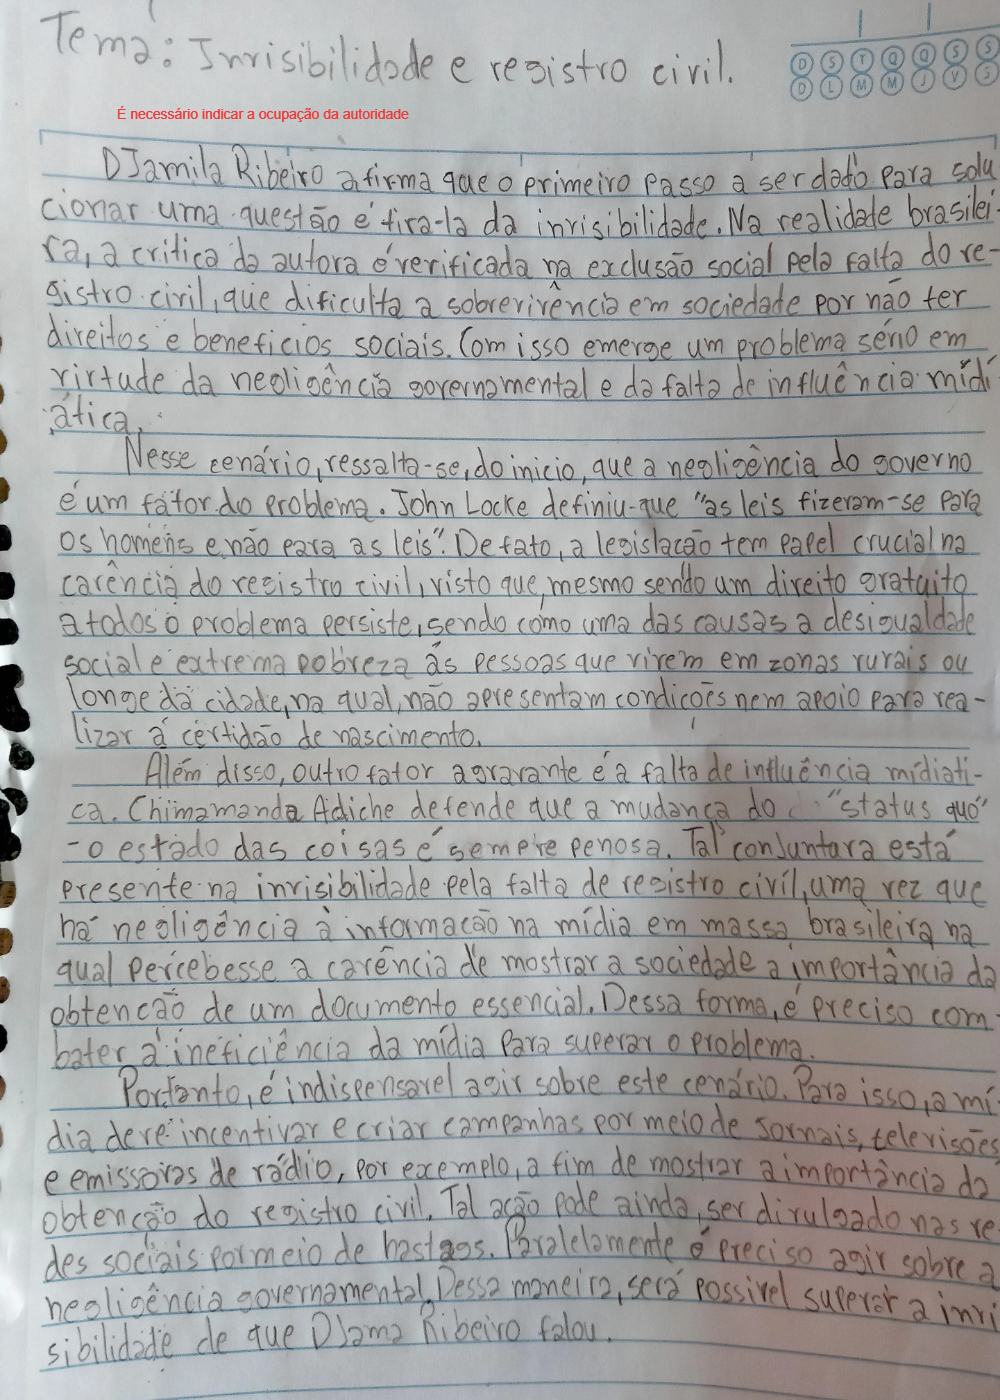 Tema: Invisibilidade e registro civil.
D S T Q Q S S
D L M M J V S
É necessário indicar a ocupação da autoridade
DJamila Ribeiro afirma que o primeiro passo a ser dado para solu
cionar uma questão é tira-la da invisibilidade. Na realidade brasilei-
ra, a critica da autora é verificada na exclusão social pela falta do re-
gistro civil, que dificulta a sobrevivência em sociedade por não ter
direitos e beneficios sociais. Com isso emerge um problema sério em
virtude da negligência governamental e da falta de influência midi
ática.
Nesse cenário, ressalta-se, do inicio, que a negligência do governo
é um fator do problema. John Locke definiu que "as leis fizeram-se para
os homens e não para as leis". De fato, a legislação tem papel crucial na
carência do registro civil, visto que, mesmo sendo um direito gratuito
a todos o problema persiste, sendo como uma das causas a desigualdade
social e extrema pobreza ás pessoas que vivem em zonas rurais ou
longe da cidade, na qual, não apresentam condições nem apoio para rea-
lizar a certidão de nascimento.
Além disso, outro fator agravante é a falta de influência midiati-
ca. Chimamanda Adiche defende que a mudança do "status quo"
-o estado das coisas é sempre penosa. Tal conjuntara está
presente na invisibilidade pela falta de registro civil, uma vez que
há negligência à informação na mídia em massa brasileira na
qual percebesse a carência de mostrar a sociedade a importância da
obtenção de um documento essencial. Dessa forma, é preciso com-
bater a ineficiência da mídia para superar o problema.
Portanto, é indispensavel agir sobre este cenário. Para isso, a mí-
dia deve incentivar e criar campanhas por meio de jornais, televisões
e emissoras de rádio, por exemplo, a fim de mostrar a importância da
obtenção do registro civil. Tal ação pode ainda, ser divulgado nas re
des sociais por meio de hastags. Paralelamente é preciso agir sobre a
negligência governamental. Dessa maneira, será possivel superar a invi
sibilidade de que DJama Ribeiro falou.